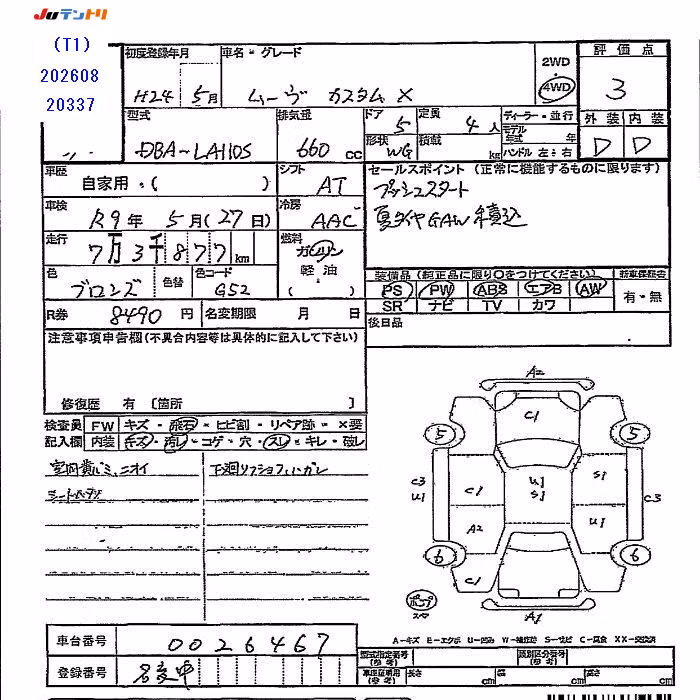 Juテントリ
(T1)
202608
20337
初度登録年月
車名・グレード
H24 5月
ムーヴ カスタム X
2WD
4WD
評価点
3
型式
DBA-LA110S
排気量
660 cc
ドア
5
定員
4人
形状
WG
積載
kg
ディーラー・並行
モデル年式 年
ハンドル 左:右
外装
内装
D
D
車歴
自家用・( )
シフト
AT
セールスポイント (正常に機能するものに限ります)
プッシュスタート
夏タイヤGAW積込
車検
R9年 5月(27日)
冷房
AAC
走行
7万3千877km
燃料
ガソリン
軽油
( )
色
ブロンズ
色替
色コード
G52
装備品 (純正品に限り○をつけてください)
新車保証書
PS PW ABS エアB AW
SR ナビ TV カワ
有・無
R券
8490円
名変期限 月 日
後日品
注意事項申告欄(不具合内容等は具体的に記入して下さい)
修復歴 有 〔箇所 〕
検査員
記入欄
FW
キズ・飛石・ヒビ割・リペア跡・×要
内装
キズ・汚レ・コゲ・穴・スレ・キレ・破レ
下廻リ
A2
C1
5
5
C3
U1
C1
U1
S1
S1
C3
A2
U1
6
6
C1
ポンプ
A1
車台番号
0026467
登録番号
名変中
型式指定番号
(参考)
類別区分番号
(参考)
長さ cm
幅 cm
高さ cm